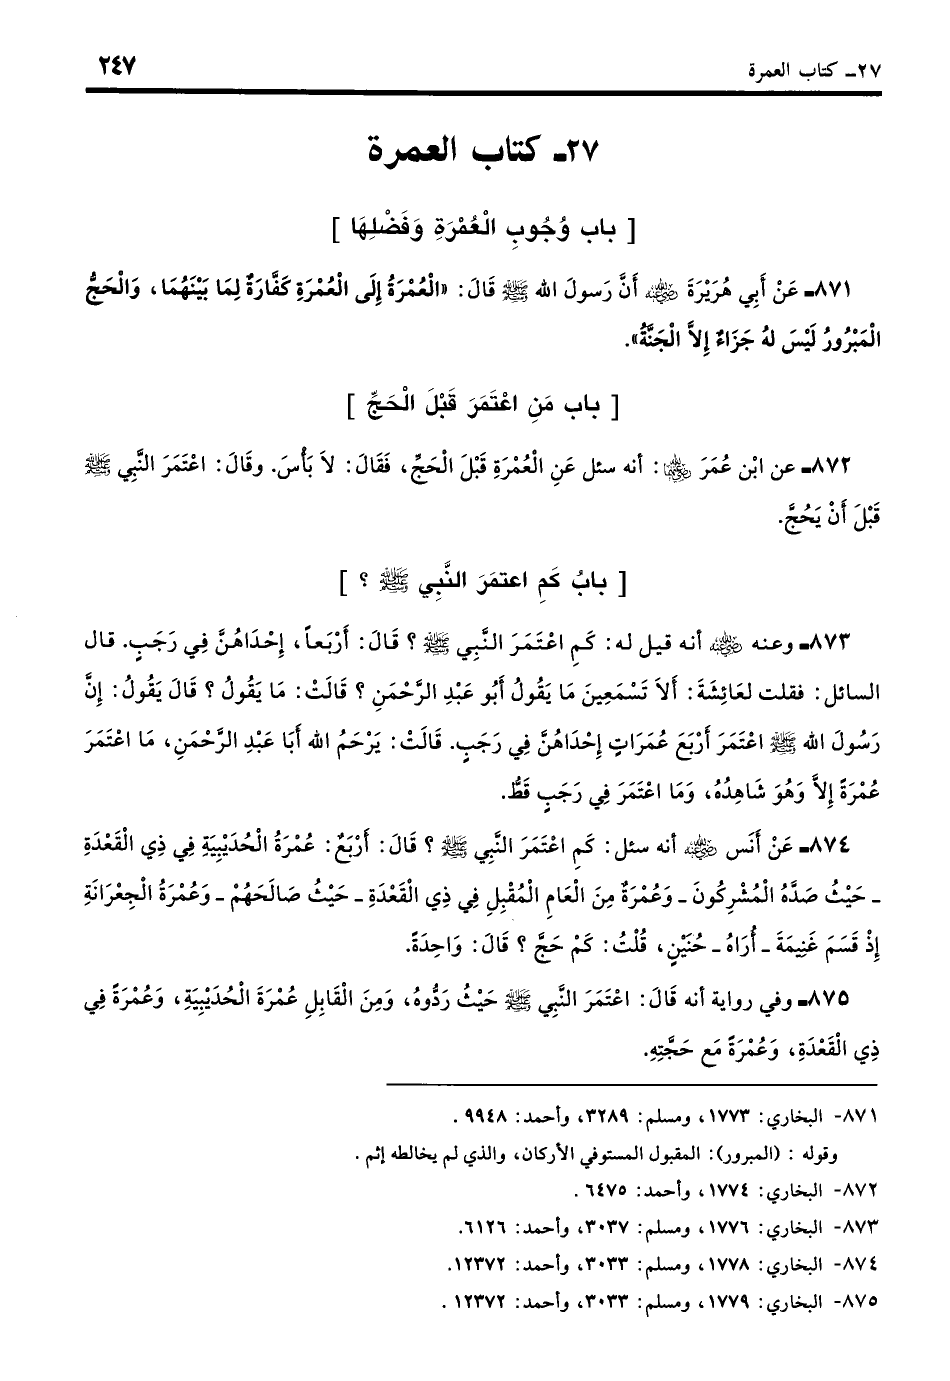 ٢٧ـ كتاب العمرة ٢٤٧
٢٧ـ كتاب العمرة
[ باب وُجُوبِ الْعُمْرَةِ وَفَضْلِهَا ]
٨٧١ـ عَنْ أَبِي هُرَيْرَةَ رضي الله عنه أَنَّ رَسولَ الله ﷺ قَالَ: «الْعُمْرَةُ إِلَى الْعُمْرَةِ كَفَّارَةٌ لِمَا بَيْنَهُمَا، وَالْحَجُّ
الْمَبْرُورُ لَيْسَ لهُ جَزَاءٌ إِلاَّ الْجَنَّةُ».
[ باب مَنِ اعْتَمَرَ قَبْلَ الْحَجِّ ]
٨٧٢ـ عن ابْن عُمَرَ رضي الله عنهما: أنه سئل عَنِ الْعُمْرَةِ قَبْلَ الْحَجِّ، فَقَالَ: لاَ بَأْسَ. وقَالَ: اعْتَمَرَ النَّبِي ﷺ
قَبْلَ أَنْ يَحُجَّ.
[ بابُ كَمِ اعتمَرَ النَّبِي ﷺ ؟ ]
٨٧٣ـ وعنه رضي الله عنه أنه قيل له: كَمِ اعْتَمَرَ النَّبِي ﷺ ؟ قَالَ: أَرْبَعاً، إِحْدَاهُنَّ فِي رَجَبٍ. قال
السائل: فقلت لعَائِشَةَ: أَلاَ تَسْمَعِينَ مَا يَقُولُ أَبُو عَبْدِ الرَّحْمَنِ ؟ قَالَتْ: مَا يَقُولُ ؟ قَالَ يَقُولُ: إِنَّ
رَسُولَ الله ﷺ اعْتَمَرَ أَرْبَعَ عُمَرَاتٍ إِحْدَاهُنَّ فِي رَجَبٍ. قَالَتْ: يَرْحَمُ الله أَبَا عَبْدِ الرَّحْمَنِ، مَا اعْتَمَرَ
عُمْرَةً إِلاَّ وَهُوَ شَاهِدُهُ، وَمَا اعْتَمَرَ فِي رَجَبٍ قَطُّ.
٨٧٤ـ عَنْ أَنَس رضي الله عنه أنه سئل: كَمِ اعْتَمَرَ النَّبِي ﷺ ؟ قَالَ: أَرْبَعٌ: عُمْرَةُ الْحُدَيْبِيَةِ فِي ذِي الْقَعْدَةِ
ـ حَيْثُ صَدَّهُ الْمُشْرِكُونَ ـ وَعُمْرَةٌ مِنَ الْعَامِ الْمُقْبِلِ فِي ذِي الْقَعْدَةِ ـ حَيْثُ صَالَحَهُمْ ـ وَعُمْرَةُ الْجِعْرَانَةِ
إِذْ قَسَمَ غَنِيمَةَ ـ أُرَاهُ ـ حُنَيْنٍ، قُلْتُ: كَمْ حَجَّ ؟ قَالَ: وَاحِدَةً.
٨٧٥ـ وفي رواية أنه قَالَ: اعْتَمَرَ النَّبِي ﷺ حَيْثُ رَدُّوهُ، وَمِنَ الْقَابِلِ عُمْرَةَ الْحُدَيْبِيَةِ، وَعُمْرَةً فِي
ذِي الْقَعْدَةِ، وَعُمْرَةً مَع حَجَّتِهِ.
٨٧١- البخاري: ١٧٧٣، ومسلم: ٣٢٨٩، وأحمد: ٩٩٤٨ .
وقوله : (المبرور): المقبول المستوفي الأركان، والذي لم يخالطه إثم .
٨٧٢- البخاري: ١٧٧٤، وأحمد: ٦٤٧٥ .
٨٧٣- البخاري: ١٧٧٦، ومسلم: ٣٠٣٧، وأحمد: ٦١٢٦.
٨٧٤- البخاري: ١٧٧٨، ومسلم: ٣٠٣٣، وأحمد: ١٢٣٧٢.
٨٧٥- البخاري: ١٧٧٩، ومسلم: ٣٠٣٣، وأحمد: ١٢٣٧٢ .